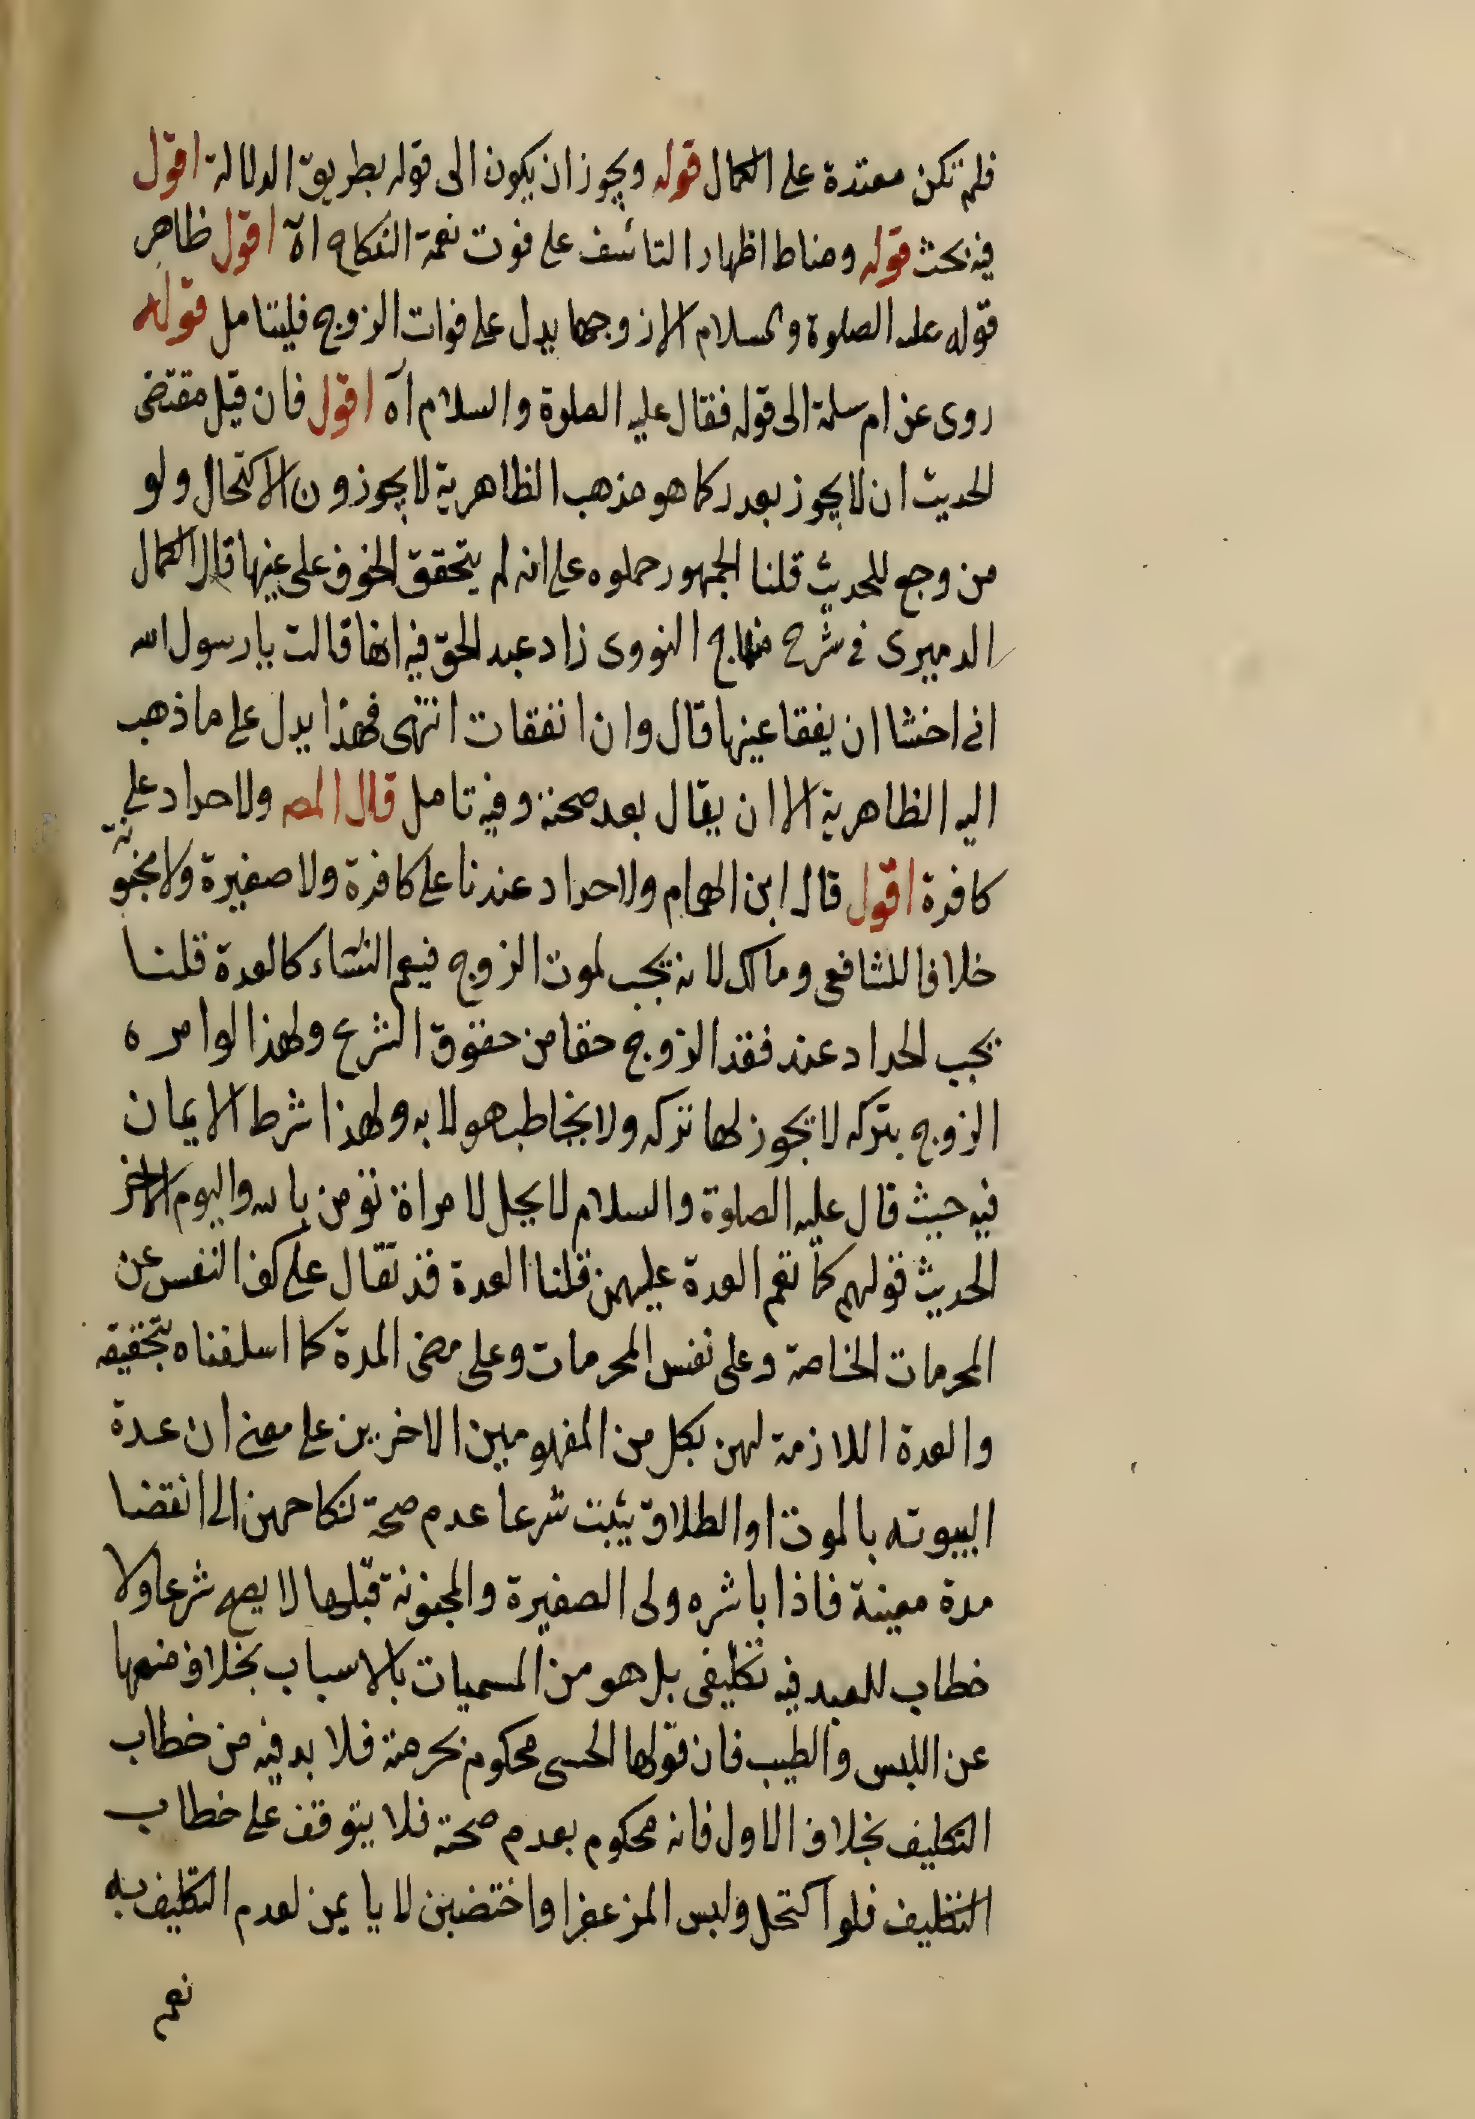 فلم تكن معتدة على الكمال قوله ويجوز ان يكون الى قوله بطريق الدلالة اقول
فيه بحث قوله ومناط اظهار التأسف على فوت نعمة النكاح اه اقول ظاهر
قوله عليه الصلوة والسلام الا زوجها يدل على فوات الزوج فليتامل قوله
روى عن ام سلمة الى قوله فقال عليه الصلوة والسلام اه اقول فان قيل مقتضى
الحديث ان لا يجوز بعذر كما هو مذهب الظاهرية لا يجوزون الاكتحال ولو
من وجع للحديث قلنا الجمهور حملوه على انه لم يتحقق الخوف على عينها قال الكمال
الدميرى فى شرح منهاج النووى زاد عبد الحق فيه انها قالت يا رسول الله
انى اخشا ان يفقا عينها قال وان انفقات انتهى فهذا يدل على ما ذهب
اليه الظاهرية الا ان يقال بعد صحته وفيه تامل قال المص ولا حداد على
كافرة اقول قال ابن الهمام ولا حداد عندنا على كافرة ولا صغيرة ولا مجنونة
خلافا للشافعى ومالك لانه يجب لموت الزوج فيعم النساء كالعدة قلنا
يجب الحداد عند فقد الزوج حقا من حقوق الشرع ولهذا لو امره
الزوج بتركه لا يجوز لها تركه ولا يخاطب هولا به ولهذا شرط الايمان
فيه حيث قال عليه الصلوة والسلام لا يحل لامراة تؤمن بالله واليوم الاخر
الحديث قولهم كما تعم العدة عليهن قلنا العدة قد تقال على كف النفس عن
المحرمات الخاصة وعلى نفس المحرمات وعلى مضى المدة كما اسلفناه بتحقيقه
والعدة اللازمة لهن بكل من المفهومين الاخرين على معنى ان عدة
البيوته بالموت او الطلاق يثبت شرعا عدم صحة نكاحهن الى انقضا
مدة معينة فاذا باشره ولى الصغيرة والمجنونة قبلها لا يصح شرعا ولا
خطاب للعبد فيه تكليفى بل هو من المسميات بالاسباب بخلاف منعها
عن اللبس والطيب فان قولها الحسى محكوم بحرمته فلا بد فيه من خطاب
التكليف بخلاف الاول فانه محكوم بعدم صحته فلا يتوقف على خطاب
التكليف فلو اكتحل ولبس المزعفر او اختضبن لا ياثمن لعدم التكليف به
نعم